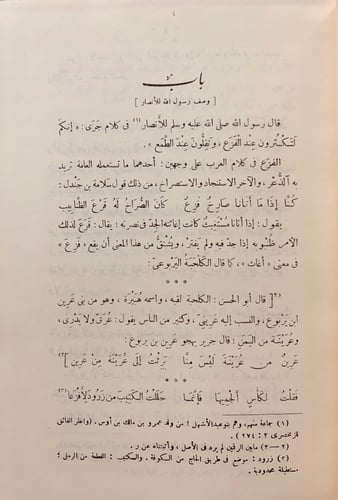 باب
[ وصف رسول الله للأنصار ]
قال رسول الله صلى الله عليه وسلم للأنصار(١) في كلام جَرَى: « إنكم
لَتَكثُرون عِنْدَ الفَزَع ، وتَقِلُّونَ عِنْدَ الطَّمَع » .
الفزع في كلام العرب على وجهين: أحدهما ما تستعمله العامة تريد
به الذُّعْر، والآخر الاستنجاد والاستصراخ، من ذلك قول سلامة بن جَندل:
كُنَّا إذَا مَا أتَانَا صَارِخٌ فَزِعٌ كانَ الصُّراخُ لهُ قَرْعَ الظَّنابِيبِ
يقول: إذا ما أتانا مُسْتَغيثٌ كانت إغاثتُه الجِدَّ في نصرته؛ يقال: قَرَع لذلك
الأمر ظُنْبُوبه إذا جدّ فيه ولم يَفْتُر. ويُشتقُّ من هذا المعنى أن يقع « فَزِع »
في معنى « أغاث » ، كما قال الكَلْحَبَة اليَرْبُوعيّ:
[(٢) قال أبو الحسن: الكلحبة لقبه، واسمه هُبَيْرَة، وهو من بني عَرِين
ابن يَرْبوع، والنسب إليه عَرِينيٌّ، وكثير من الناس يقول: عُرَنيٌّ ولا يَدْرِي،
وعُرَيْنَة من اليَمن؛ قال جرير يهجو عَرين بن يربوع:
عَرِينٌ مِن عُرَيْنَةَ لَيْسَ مِنَّا بَرِئْتُ إلَى عُرَيْنَةَ مِنْ عَرِينِ ](٢)
* * *
فَقُلْتُ لِكَأْسٍ أَلْجِمِيهَا فَإِنَّمَا حَلَلْتُ الكَثِيبَ مِن زَرُودَ لِأَفْزَعَا(٣)
(١) جماعة منهم، وهم بنو عبد الأشهل؛ من ولد عمرو بن مالك بن أوس. (وانظر الفائق
للزمخشري ٢ : ٢٧٤ ) .
(٢ — ٢) ما بين الرقمين لم يرد في الأصل، وأثبتناه عن ر .
(٣) زرود: موضع في طريق الحاج من الكوفة. والكثيب: القطعة من الرمل؛
مستطيلة محدودبة .